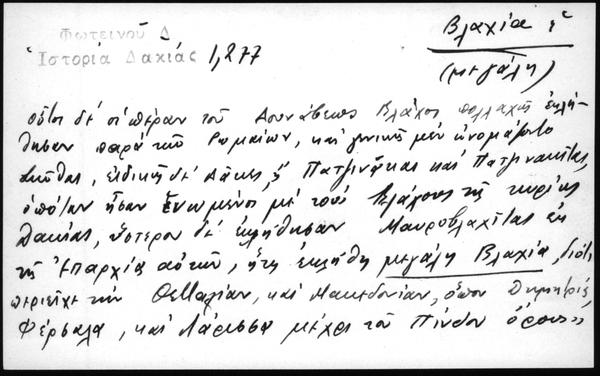 Φωτεινοῦ Δ
Ἱστορία Δακίας 1,277
Βλαχία ἡ
(μεγάλη)
οὗτοι δὲ οἱ πέραν τοῦ Δουνάβεως Βλάχοι πολλαχῶς ἐκλή-
θησαν παρὰ τῶν Ρωμαίων, καὶ γενικῶς μὲν ὠνομάζοντο
Σκύθαι, εἰδικῶς δὲ Δάκες, ἢ Πατζινάκαι καὶ Πατζινακῖται,
ὁπόταν ἦσαν ἑνωμένοι μὲ τοὺς Βλάχους τῆς κυρίως
Δακίας, ὕστερον δὲ ἐκλήθησαν Μαυροβλαχῖται ἐκ
τῆς Ἐπαρχίας αὐτῶν, ἥτις ἐκλήθη μεγάλη Βλαχία, διότι
περιεῖχε τὴν Θεσσαλίαν, καὶ Μακεδονίαν, ὅπου Δημητριάς,
Φέρσαλα, καὶ Λάρισσα μέχρι τοῦ Πίνδου ὄρους»